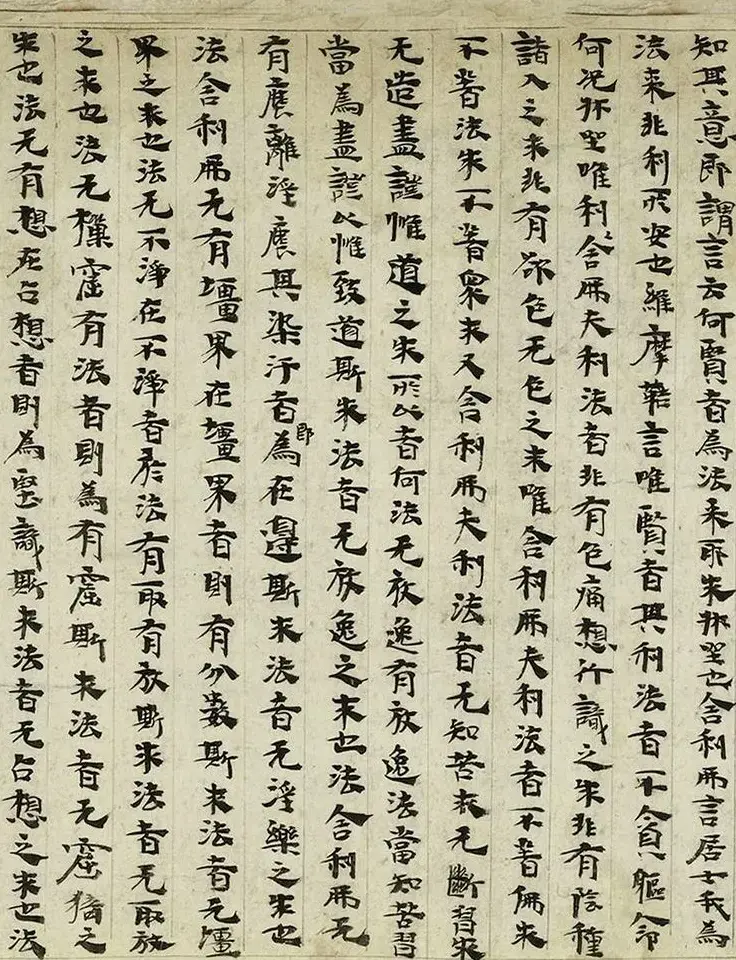 知其意即謂言云何賢者為法来耶求牀坐也舍利弗言居士我為
法来非利所安也維摩詰言唯賢者其利法者不貪軀命
何况牀坐唯利舍弗夫利法者非有色痛想行識之求非有陰種
諸入之求非有欲色无色之求唯舍利弗夫利法者不著佛求
不著法求不著衆求又舍利弗夫利法者无知苦求无斷習求
无造盡證惟道之求所以者何法无放逸有放逸法當知苦習
當為盡證以惟致道斯求法者无放逸之求也法舍利弗无
有塵離婬塵其染汙者即為在邊斯求法者无婬樂之求也
法舍利弗无有壃界在壃界者則有分數斯求法者无壃
界之求也法无不淨在不淨者於法有取有放斯求法者无取放
之求也法无樔窟有法者則為有窟斯求法者无窟猗之
求也法无有想在占想者則為堅識斯求法者无占想之求也法